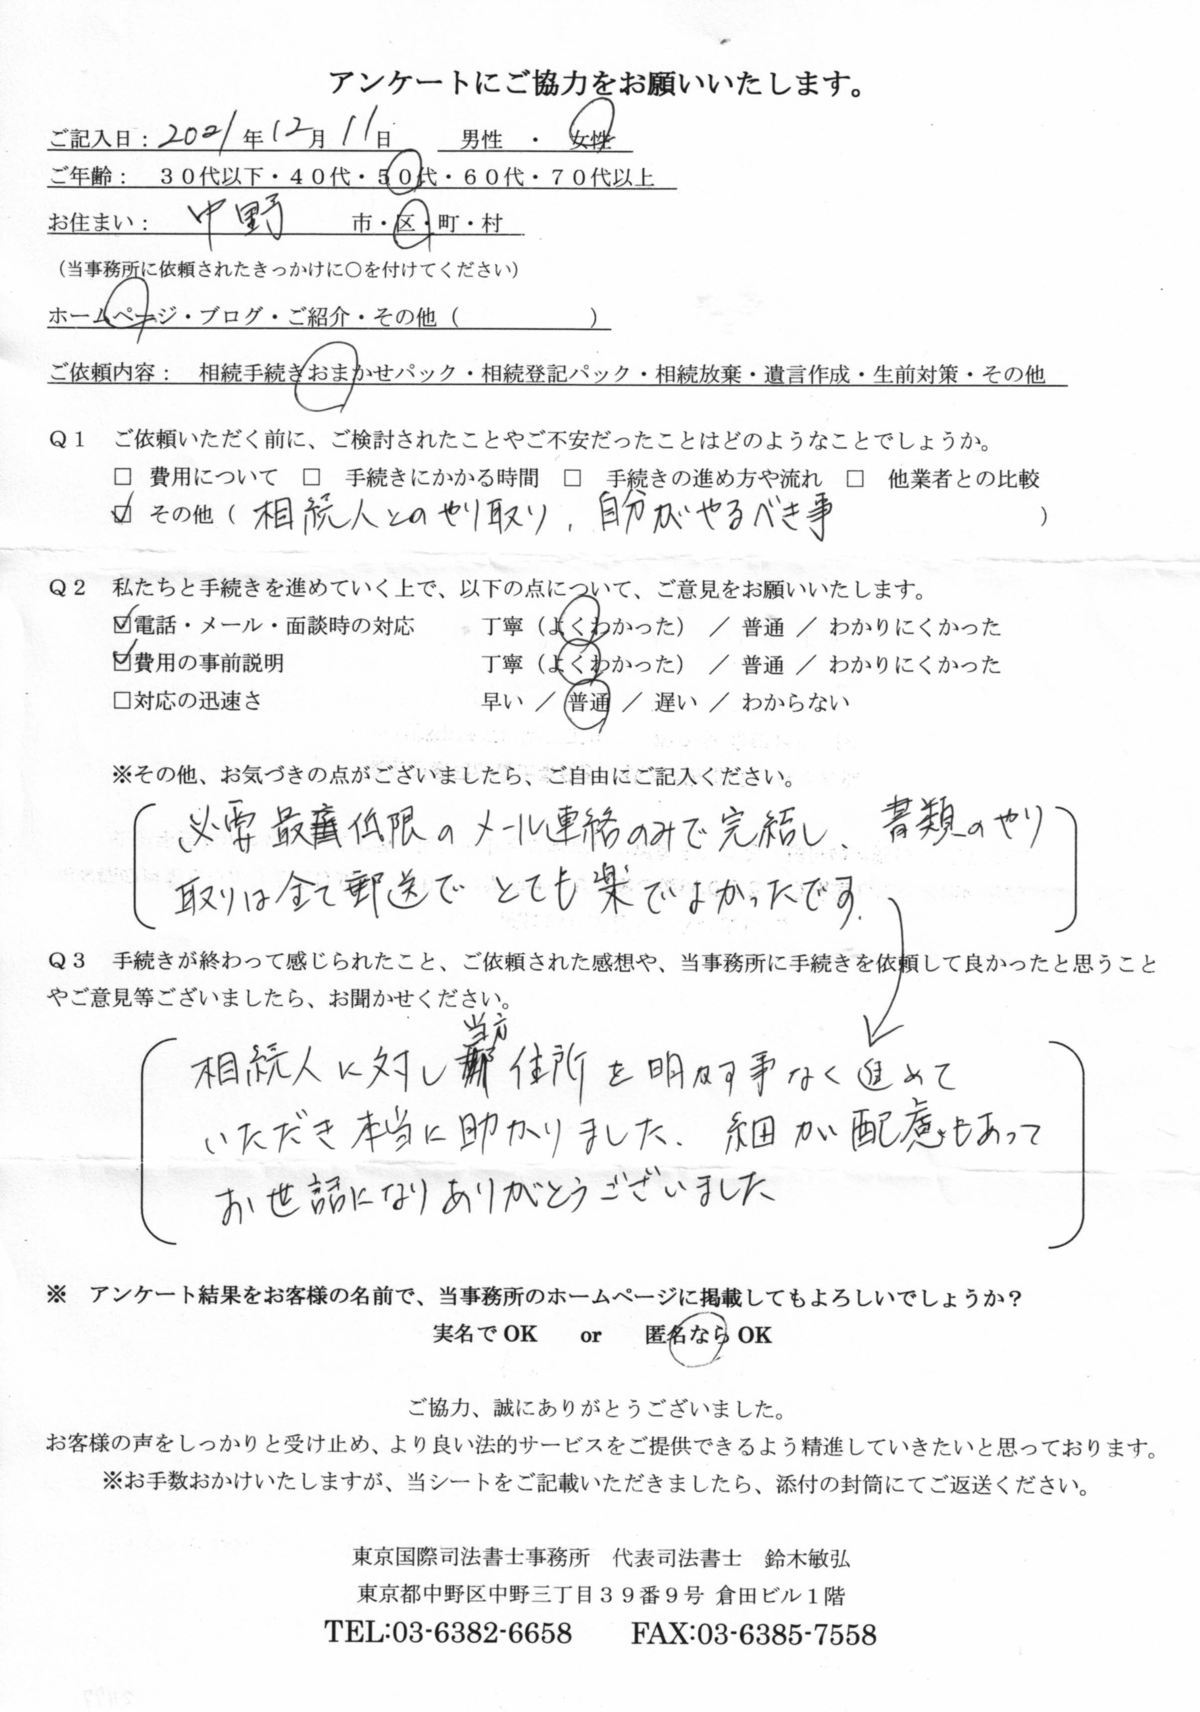 アンケートにご協力をお願いいたします。
ご記入日：2021年12月11日　男性　・　女性
ご年齢：　３０代以下・４０代・５０代・６０代・７０代以上
お住まい：　中野　市・区・町・村
（当事務所に依頼されたきっかけに○を付けてください）
ホームページ・ブログ・ご紹介・その他（　　　　　　）
ご依頼内容：　相続手続きおまかせパック・相続登記パック・相続放棄・遺言作成・生前対策・その他
Ｑ１　ご依頼いただく前に、ご検討されたことやご不安だったことはどのようなことでしょうか。
□ 費用について　□　手続きにかかる時間　□　手続きの進め方や流れ　□　他業者との比較
☑ その他（ 相続人とのやり取り、自分がやるべき事　　　　　）
Ｑ２　私たちと手続きを進めていく上で、以下の点について、ご意見をお願いいたします。
☑電話・メール・面談時の対応　　　丁寧（よくわかった）　／　普通　／　わかりにくかった
☑費用の事前説明　　　丁寧（よくわかった）　／　普通　／　わかりにくかった
□対応の迅速さ　　　早い　／　普通　／　遅い　／　わからない
※その他、お気づきの点がございましたら、ご自由にご記入ください。
必要最低限のメール連絡のみで完結し、書類のやり
取りは全て郵送でとても楽でよかったです。
Ｑ３　手続きが終わって感じられたこと、ご依頼された感想や、当事務所に手続きを依頼して良かったと思うこと
やご意見等ございましたら、お聞かせください。
相続人に対し当方住所を明かす事なく進めて
いただき本当に助かりました。細かい配慮もあって
お世話になりありがとうございました
※　アンケート結果をお客様の名前で、当事務所のホームページに掲載してもよろしいでしょうか？
実名でOK　　or　　匿名ならOK
ご協力、誠にありがとうございました。
お客様の声をしっかりと受け止め、より良い法的サービスをご提供できるよう精進していきたいと思っております。
※お手数おかけいたしますが、当シートをご記載いただきましたら、添付の封筒にてご返送ください。
東京国際司法書士事務所　代表司法書士　鈴木敏弘
東京都中野区中野三丁目３９番９号 倉田ビル１階
TEL:03-6382-6658　　FAX:03-6385-7558